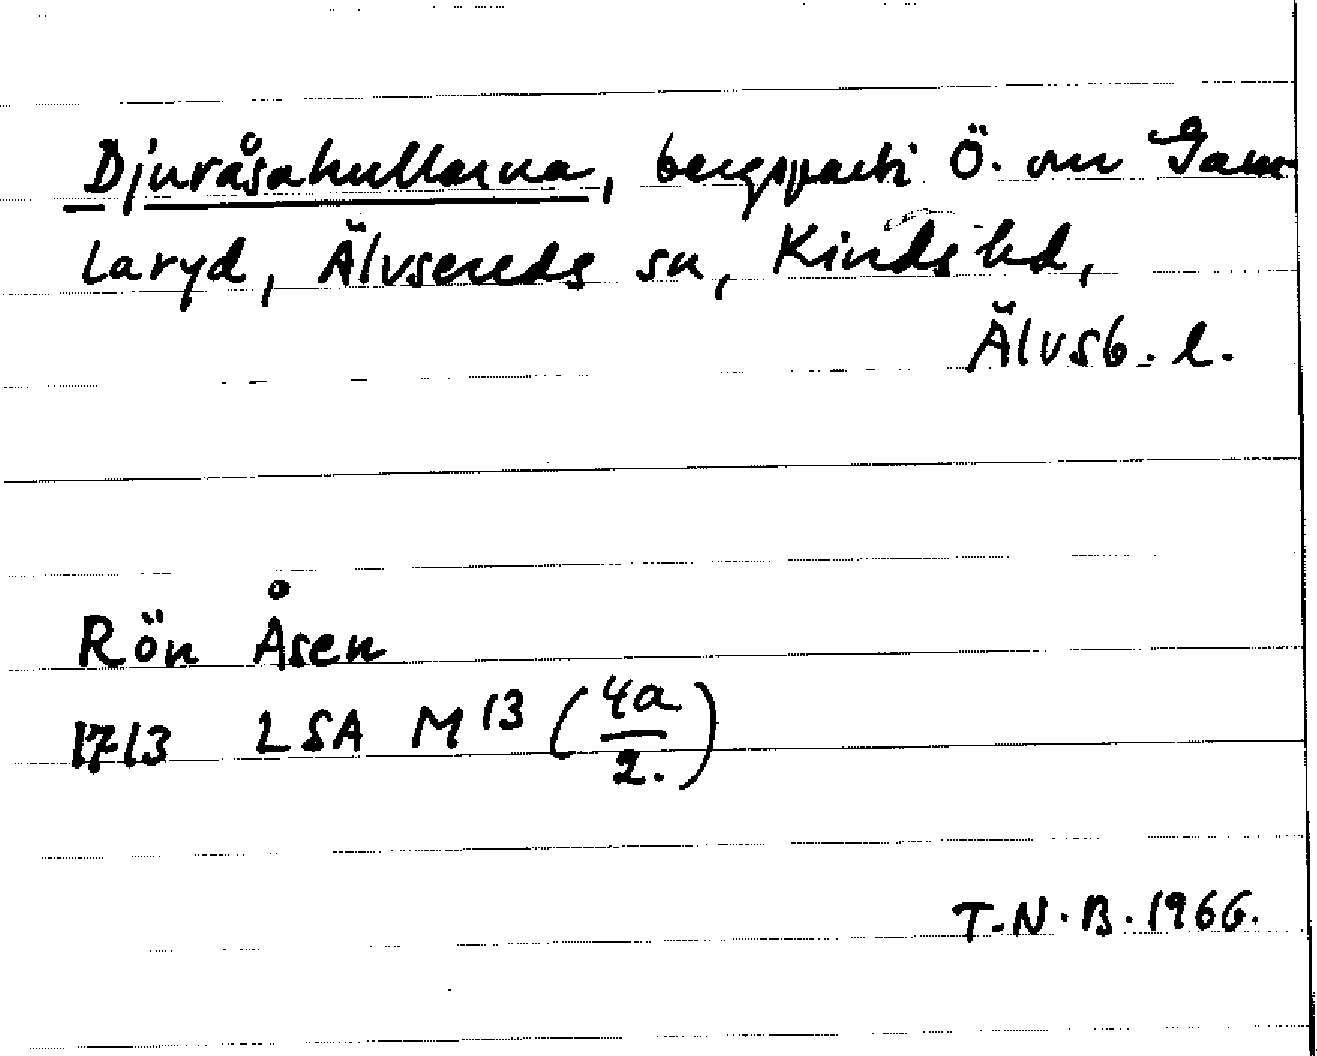 Djuråsahullarna, bergsparti Ö. om Gam
laryd, Älvsereds sn, Kinds hd,
Älvsb. l.
Rön Åsen
1713 LSA M 13 (4a/2.)
T.N.B. 1966.